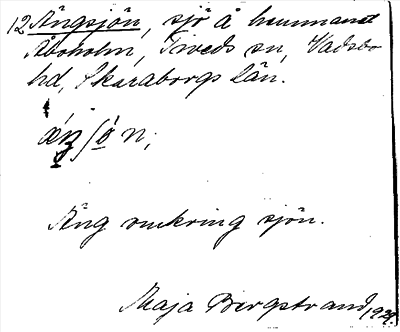 12 Ängsjön, sjö å hemmanet
Åboholm, Tiveds sn, Vadsbo
hd, Skaraborgs län.
Äng omkring sjön.
Maja Bergstrand, 1929.